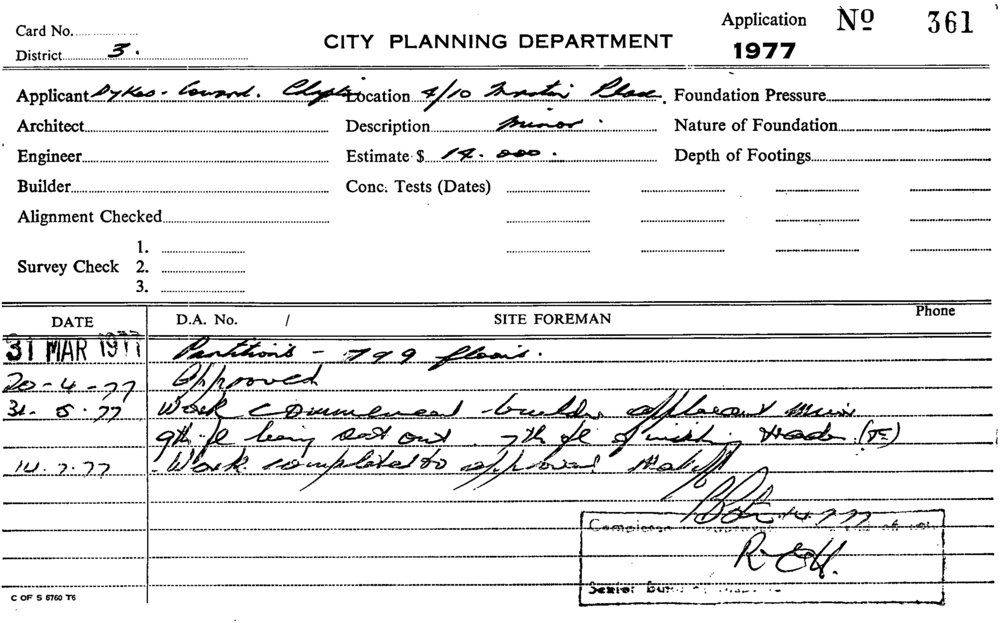 Card No.
Application No 361
District 3.
CITY PLANNING DEPARTMENT
1977
Applicant Dykes. Coward. Location 4/10 Martin Place. Foundation Pressure
Architect Description Minor. Nature of Foundation
Engineer Estimate $ 14.000. Depth of Footings
Builder Conc. Tests (Dates)
Alignment Checked
1.
Survey Check 2.
3.
DATE D.A. No. / SITE FOREMAN Phone
31 MAR 1977 Partitions - 7 9 floors.
20-4-77 Approved
31.5.77 Work commenced builder applicant
9th fl being set out. 7th fl finishing trades
14.7.77 Work completed to approval
14.7.77
Senior
C OF S 6760 T6